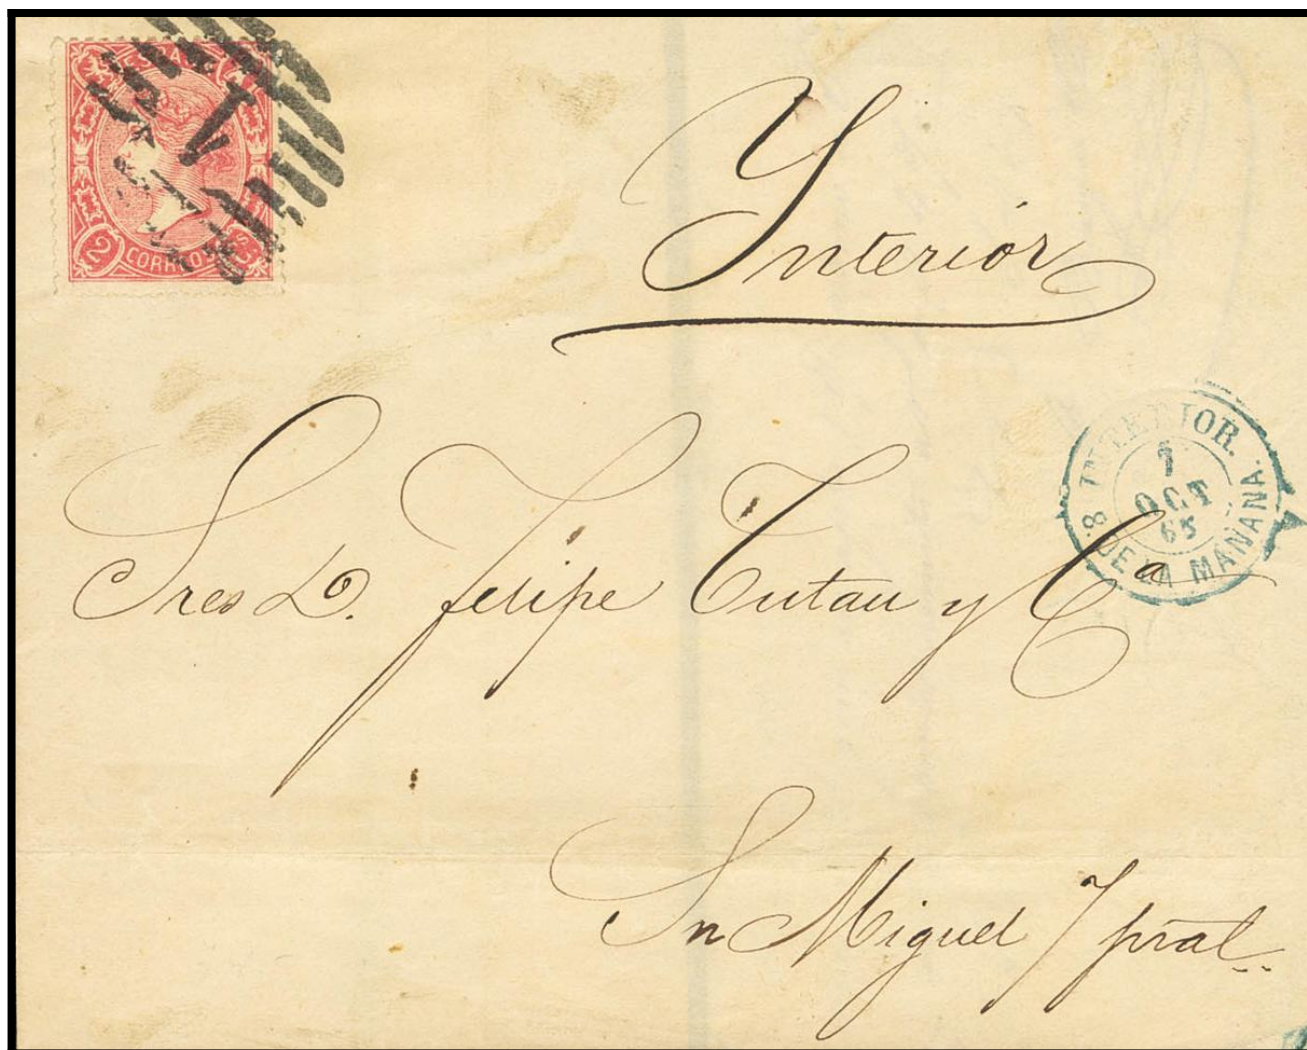 ESPAÑA
1
2 CORREOS CS
Ynterior
INTERIOR.
1
OCT
65
8 DE LA MAÑANA.
Sres D. Felipe Tutau y Ca
Sn Miguel 7 pral.